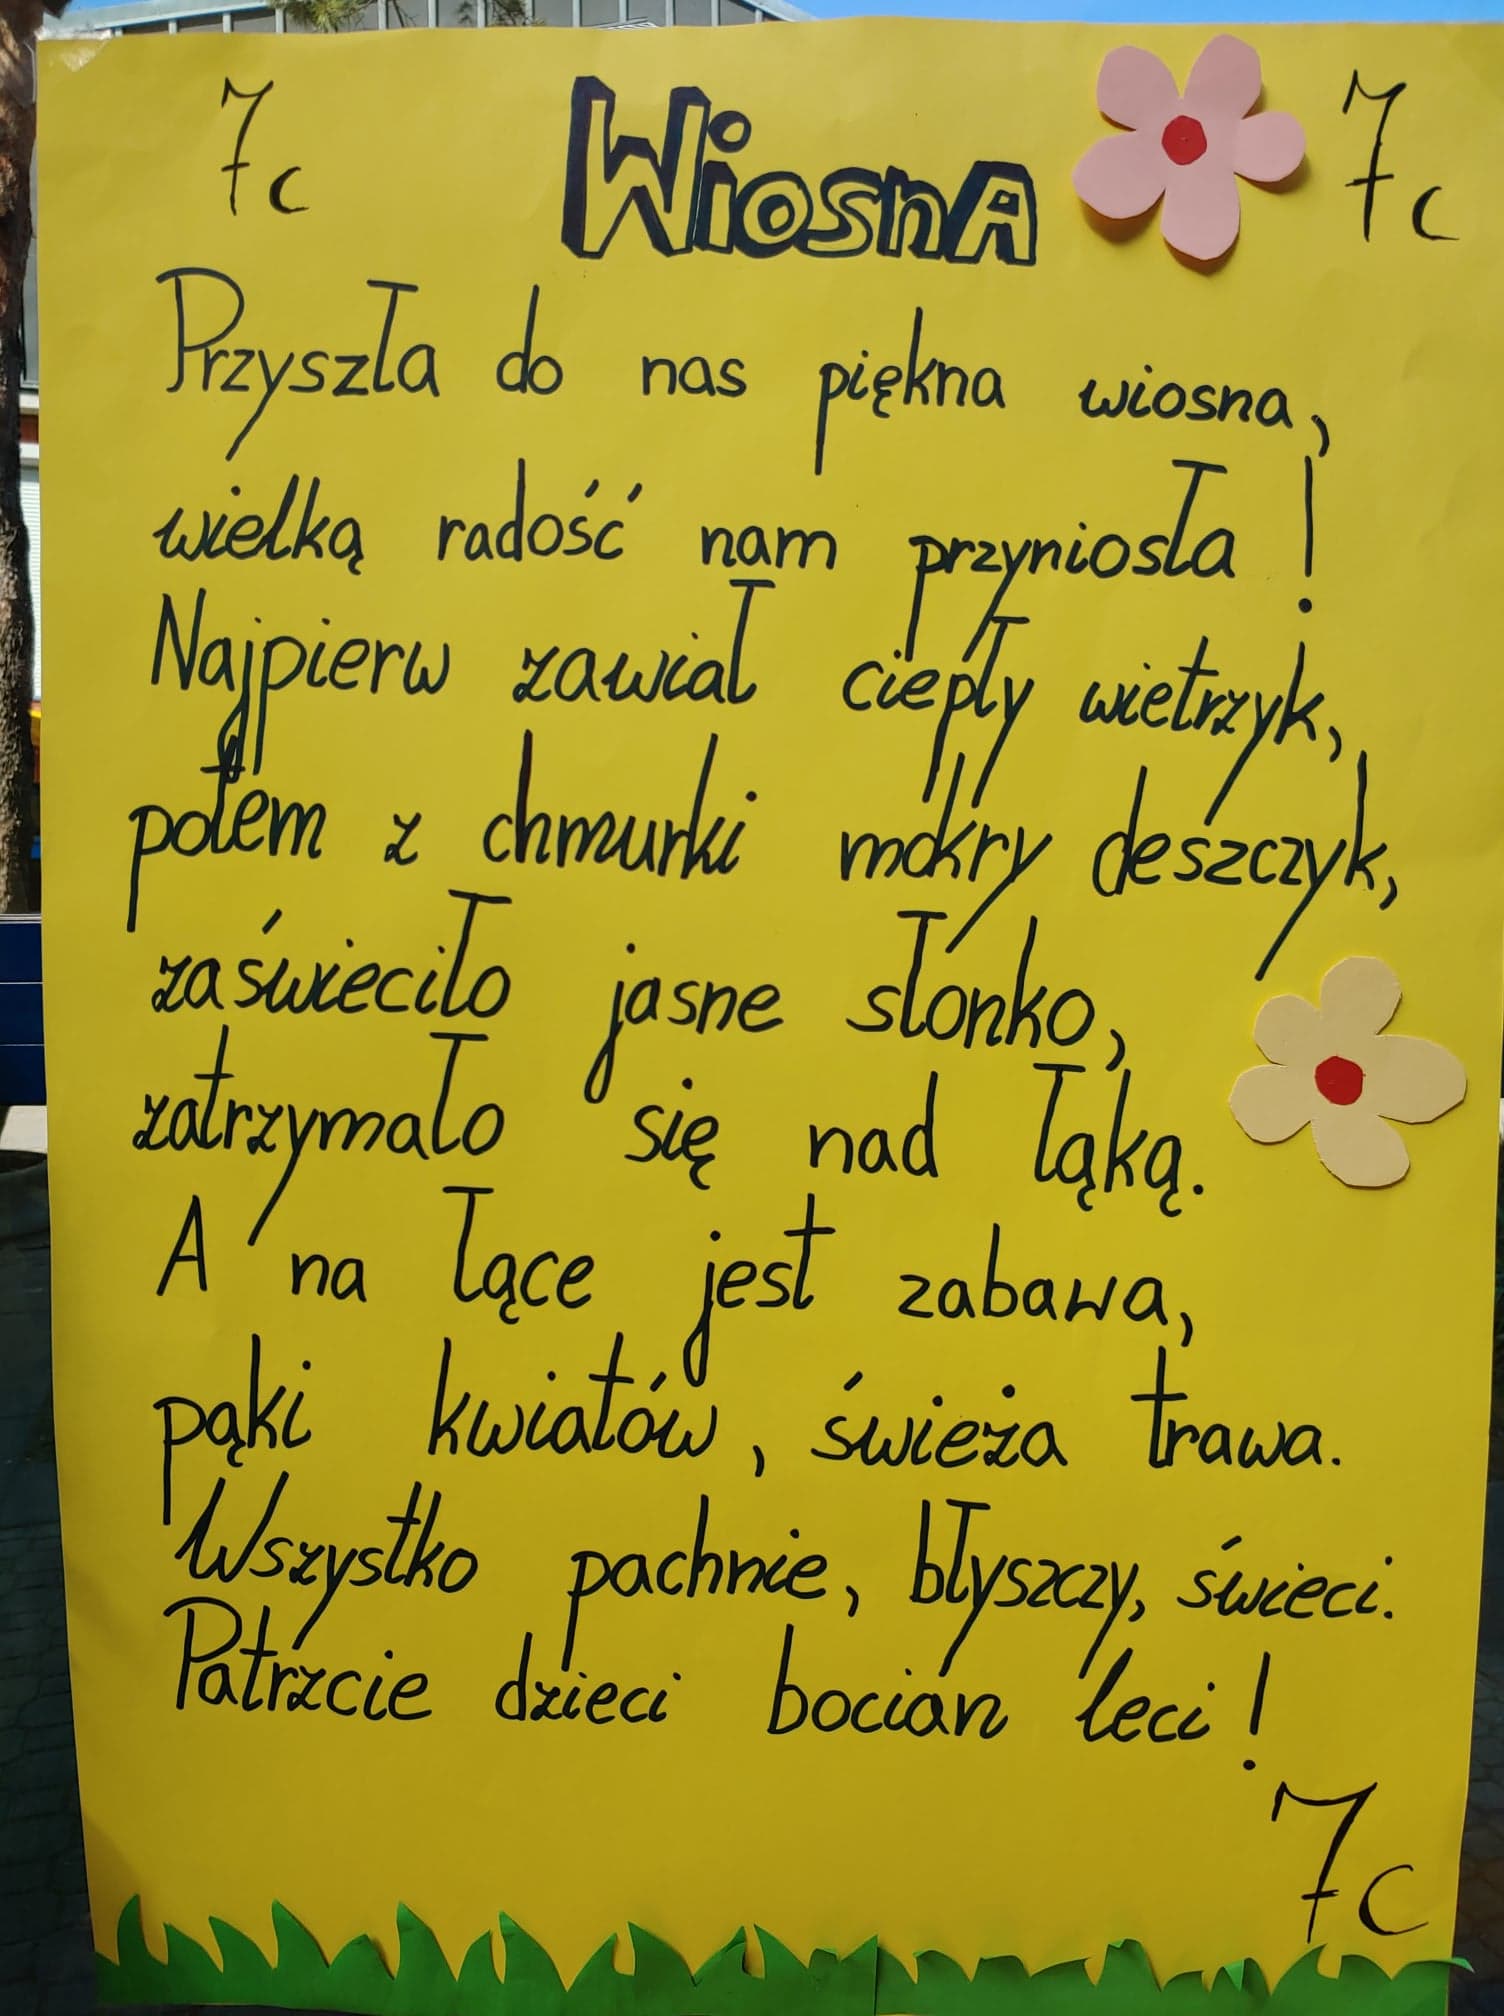 7c Wiosna 7c
Przyszła do nas piękna wiosna,
wielką radość nam przyniosła!
Najpierw zawiał ciepły wietrzyk,
potem z chmurki mokry deszczyk,
zaświeciło jasne słonko,
zatrzymało się nad łąką.
A na łące jest zabawa,
pąki kwiatów, świeża trawa.
Wszystko pachnie, błyszczy, świeci.
Patrzcie dzieci bocian leci!
7c